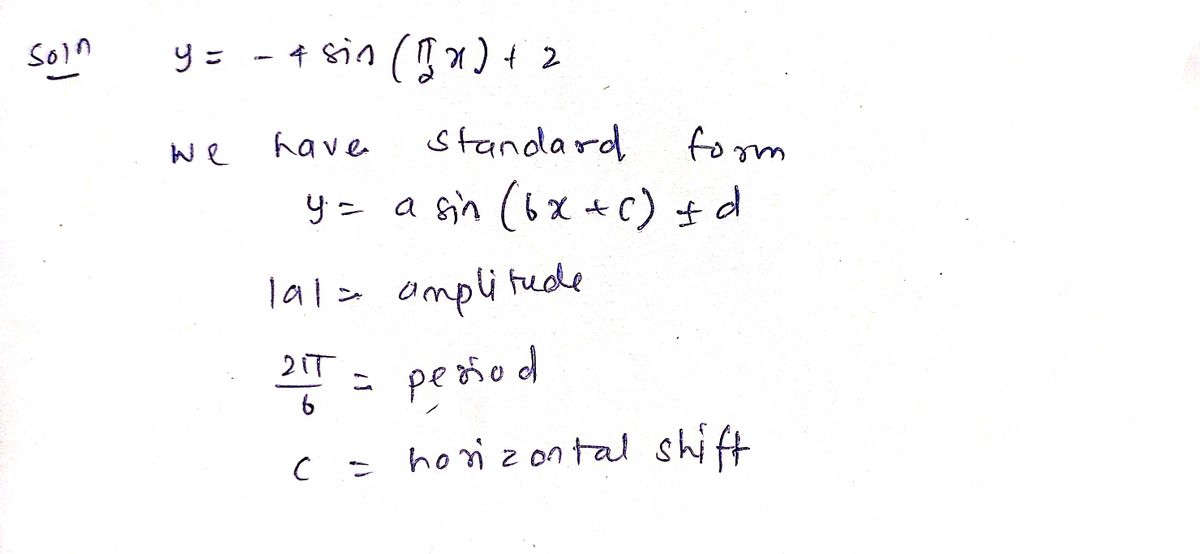 Soln y = - 4 sin (π/2 x) + 2
we have standard form
y = a sin (bx + c) ± d
|a| = amplitude
2π/b = period
c = horizontal shift